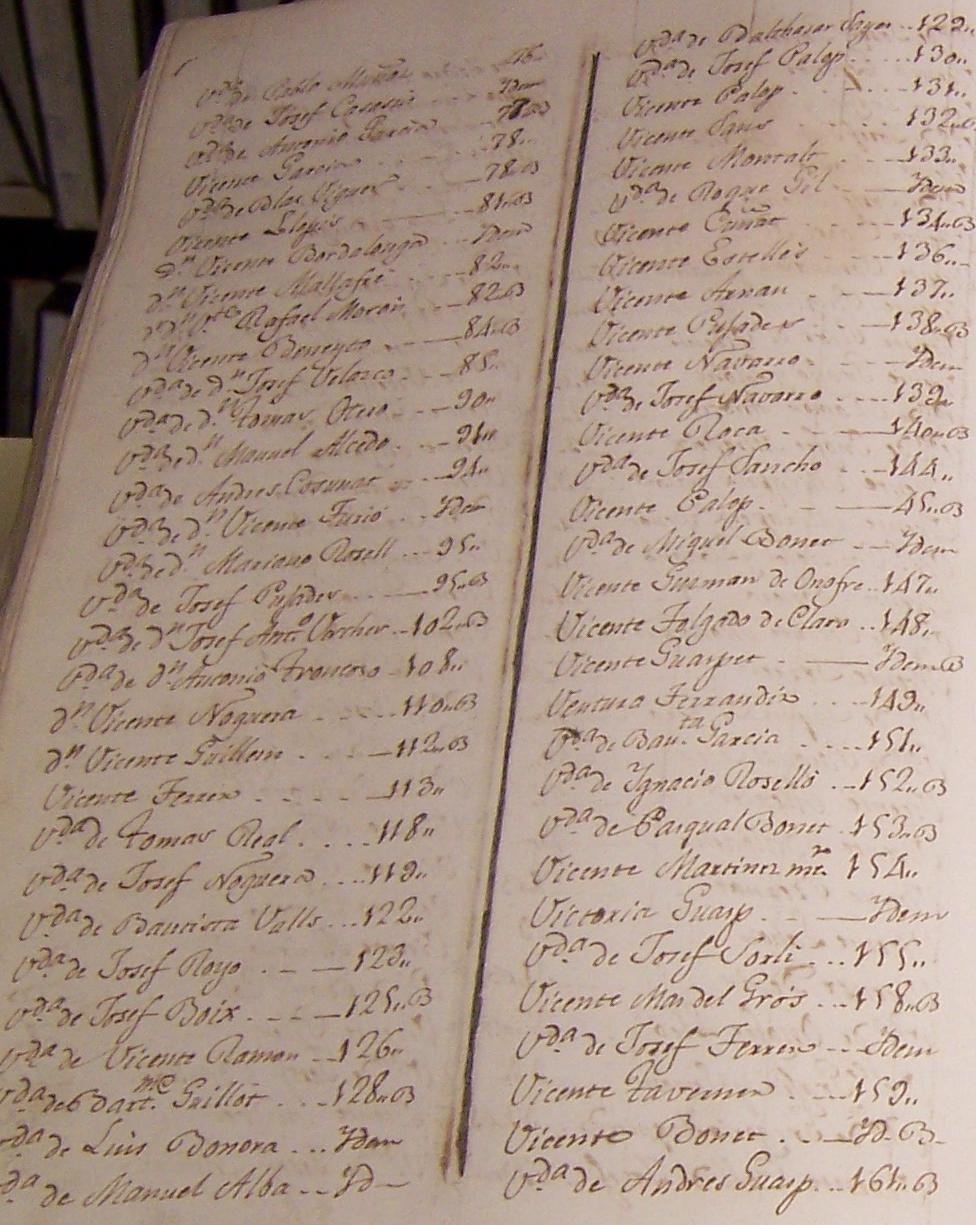 V.da de Pablo Muñoz 76..
V.da de Josef Casasus Ydem
V.da de Antonio Garcia
Vicente Garcia 78..
V.da de Blas Viguer 78..B
Vicente Llopis 81..B
D.n Vicente Bordalonga Ydem
d.n Vicente Mallafré 82..
Rafael Moron 82..B
d.n Vicente Beneyto 84..B
V.da de d.n Josef Velasco 85..
V.da de d.n Tomas Otero 90..
V.da de d.n Manuel Alcedo 91..
V.da de Andres Cosunat 94..
V.da de d.n Vicente Furió Ydem
V.da de d.n Mariano Rosell 95..
V.da de Josef Pusades 95..B
V.da de d.n Josef Ant.o Archer 102..B
V.da de d.n Antonio Troncoso 108..
d.n Vicente Noguera 110..B
d.n Vicente Guillem 112..B
Vicente Ferrer 113..
V.da de Tomas Real 118..
V.da de Josef Noguera 119..
V.da de Bautista Valls 122..
V.da de Josef Royo 123..
V.da de Josef Boix 125..B
V.da de Vicente Ramon 126..
V.da de Bart.me Guillot 128..B
V.da de Luis Bonora Ydem
V.da de Manuel Alba Yd
V.da de Balthasar Sayes 129..
V.da de Josef Palop 130..
Vicente Palop 131..
Vicente Sans 132..B
Vicente Montalt 133..
V.da de Roque Gil Ydem
Vicente Cuñat 134..B
Vicente Estelles 136..
Vicente Arnau 137..
Vicente Pusades 138..B
Vicente Navarro Ydem
V.da de Josef Navarro 139..
Vicente Roca 140..B
V.da de Josef Sancho 144..
Vicente Palop 45..B
V.da de Miquel Bonet Ydem
Vicente Gusman de Onofre 147..
Vicente Folgado de Claro 148..
Vicente Guaspet Ydem B
Ventura Ferrandiz 149..
V.da de Bau.ta Garcia 151..
V.da de Ygnacio Roselló 152..B
V.da de Pasqual Bonet 153..B
Vicente Martinez 154..
Victoria Guasp Ydem
V.da de Josef Sorli 155..
Vicente Mas del Gros 158..B
V.da de Josef Ferrer Ydem
Vicente Taverner 159..
Vicente Bonet Yd. B
V.da de Andres Guasp 161..B